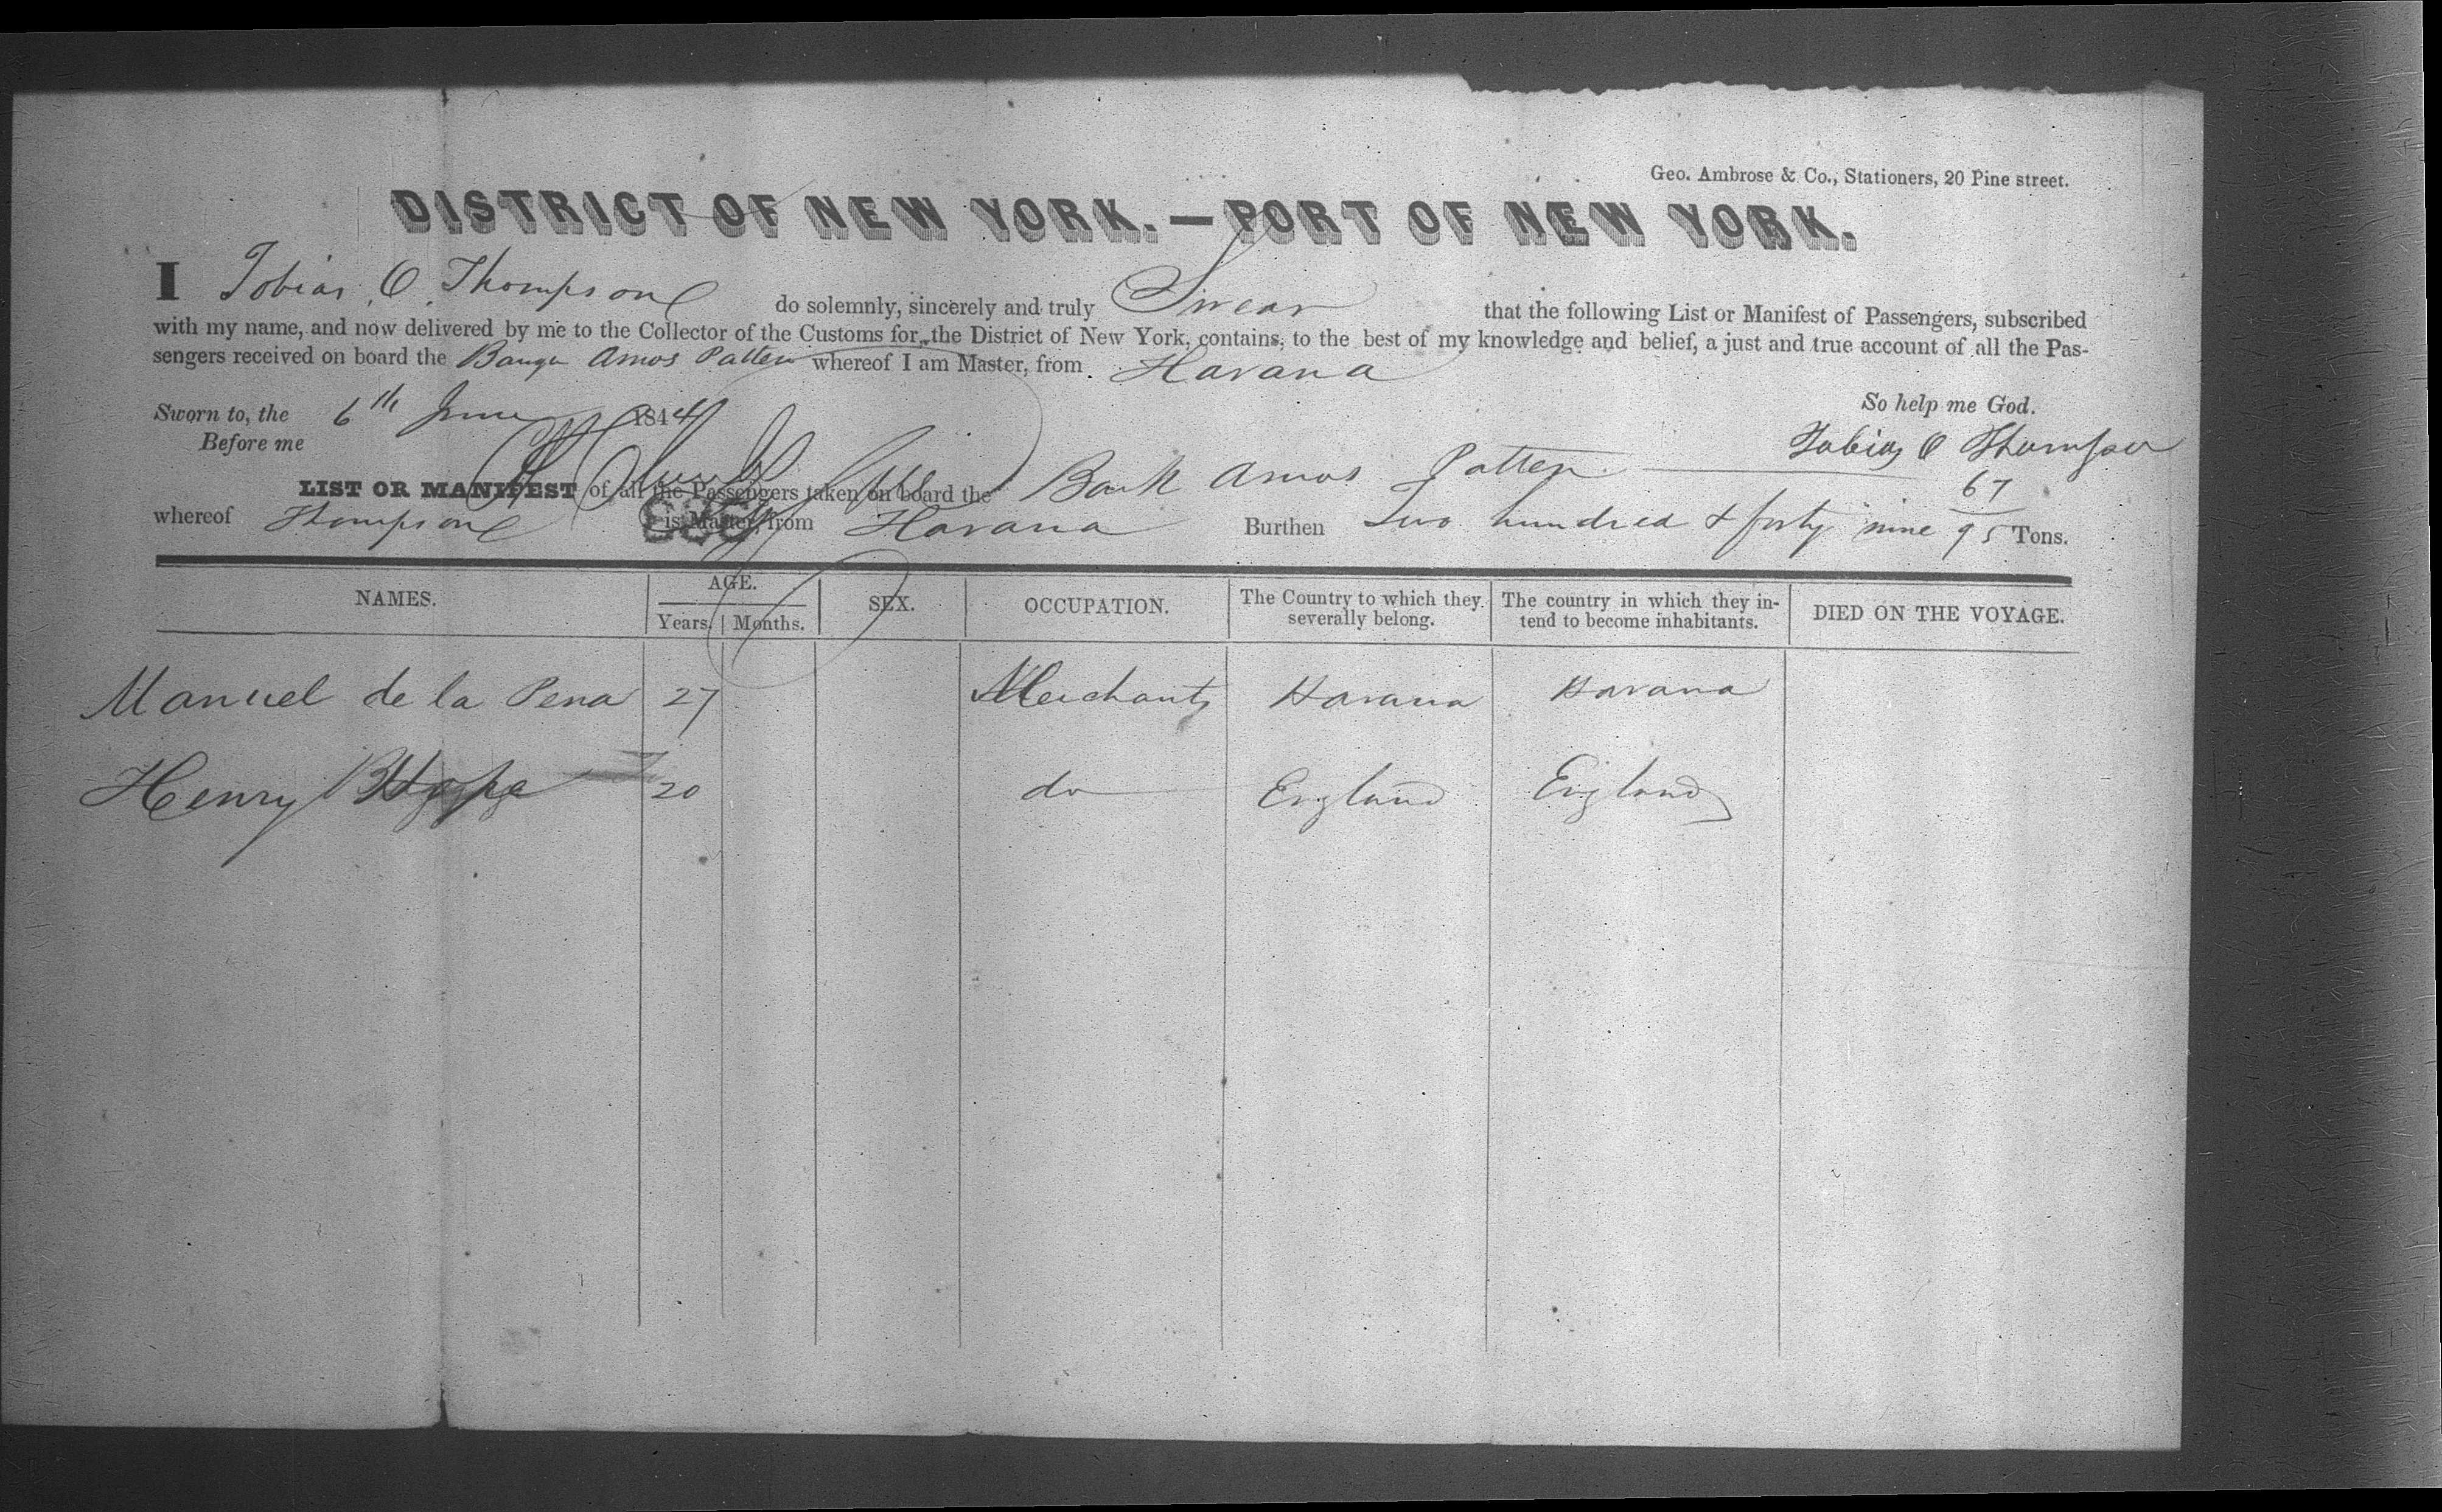 Geo. Ambrose & Co., Stationers, 20 Pine street.
DISTRICT OF NEW YORK.—PORT OF NEW YORK.
I Tobias O. Thompson do solemnly, sincerely and truly Swear that the following List or Manifest of Passengers, subscribed
with my name, and now delivered by me to the Collector of the Customs for the District of New York, contains, to the best of my knowledge and belief, a just and true account of all the Pas-
sengers received on board the Amos Patten whereof I am Master, from Havana
So help me God.
Sworn to, the 6th June 1844
Before me
Tobias O Thompson
LIST OR MANIFEST of all the Passengers taken on board the Bark Amos Patten
whereof Thompson is Master, from Havana Burthen Two hundred & forty nine 67/95 Tons.
NAMES. AGE. SEX. OCCUPATION. The Country to which they severally belong. The country in which they in-tend to become inhabitants. DIED ON THE VOYAGE.
Years. Months.
Manuel de la Pena 27 Merchants Havana Havana
Henry 20 do England England